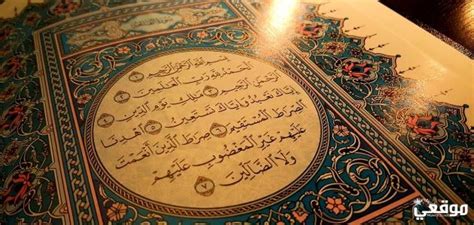 بسم الله الرحمن الرحيم ١
الحمد لله رب العالمين ٢
الرحمن الرحيم ٣ ملك يوم الدين ٤
إياك نعبد وإياك نستعين ٥ اهدنا
الصرط المستقيم ٦ صرط الذين أنعمت
عليهم غير المغضوب عليهم
ولا الضالين ٧
موقعي